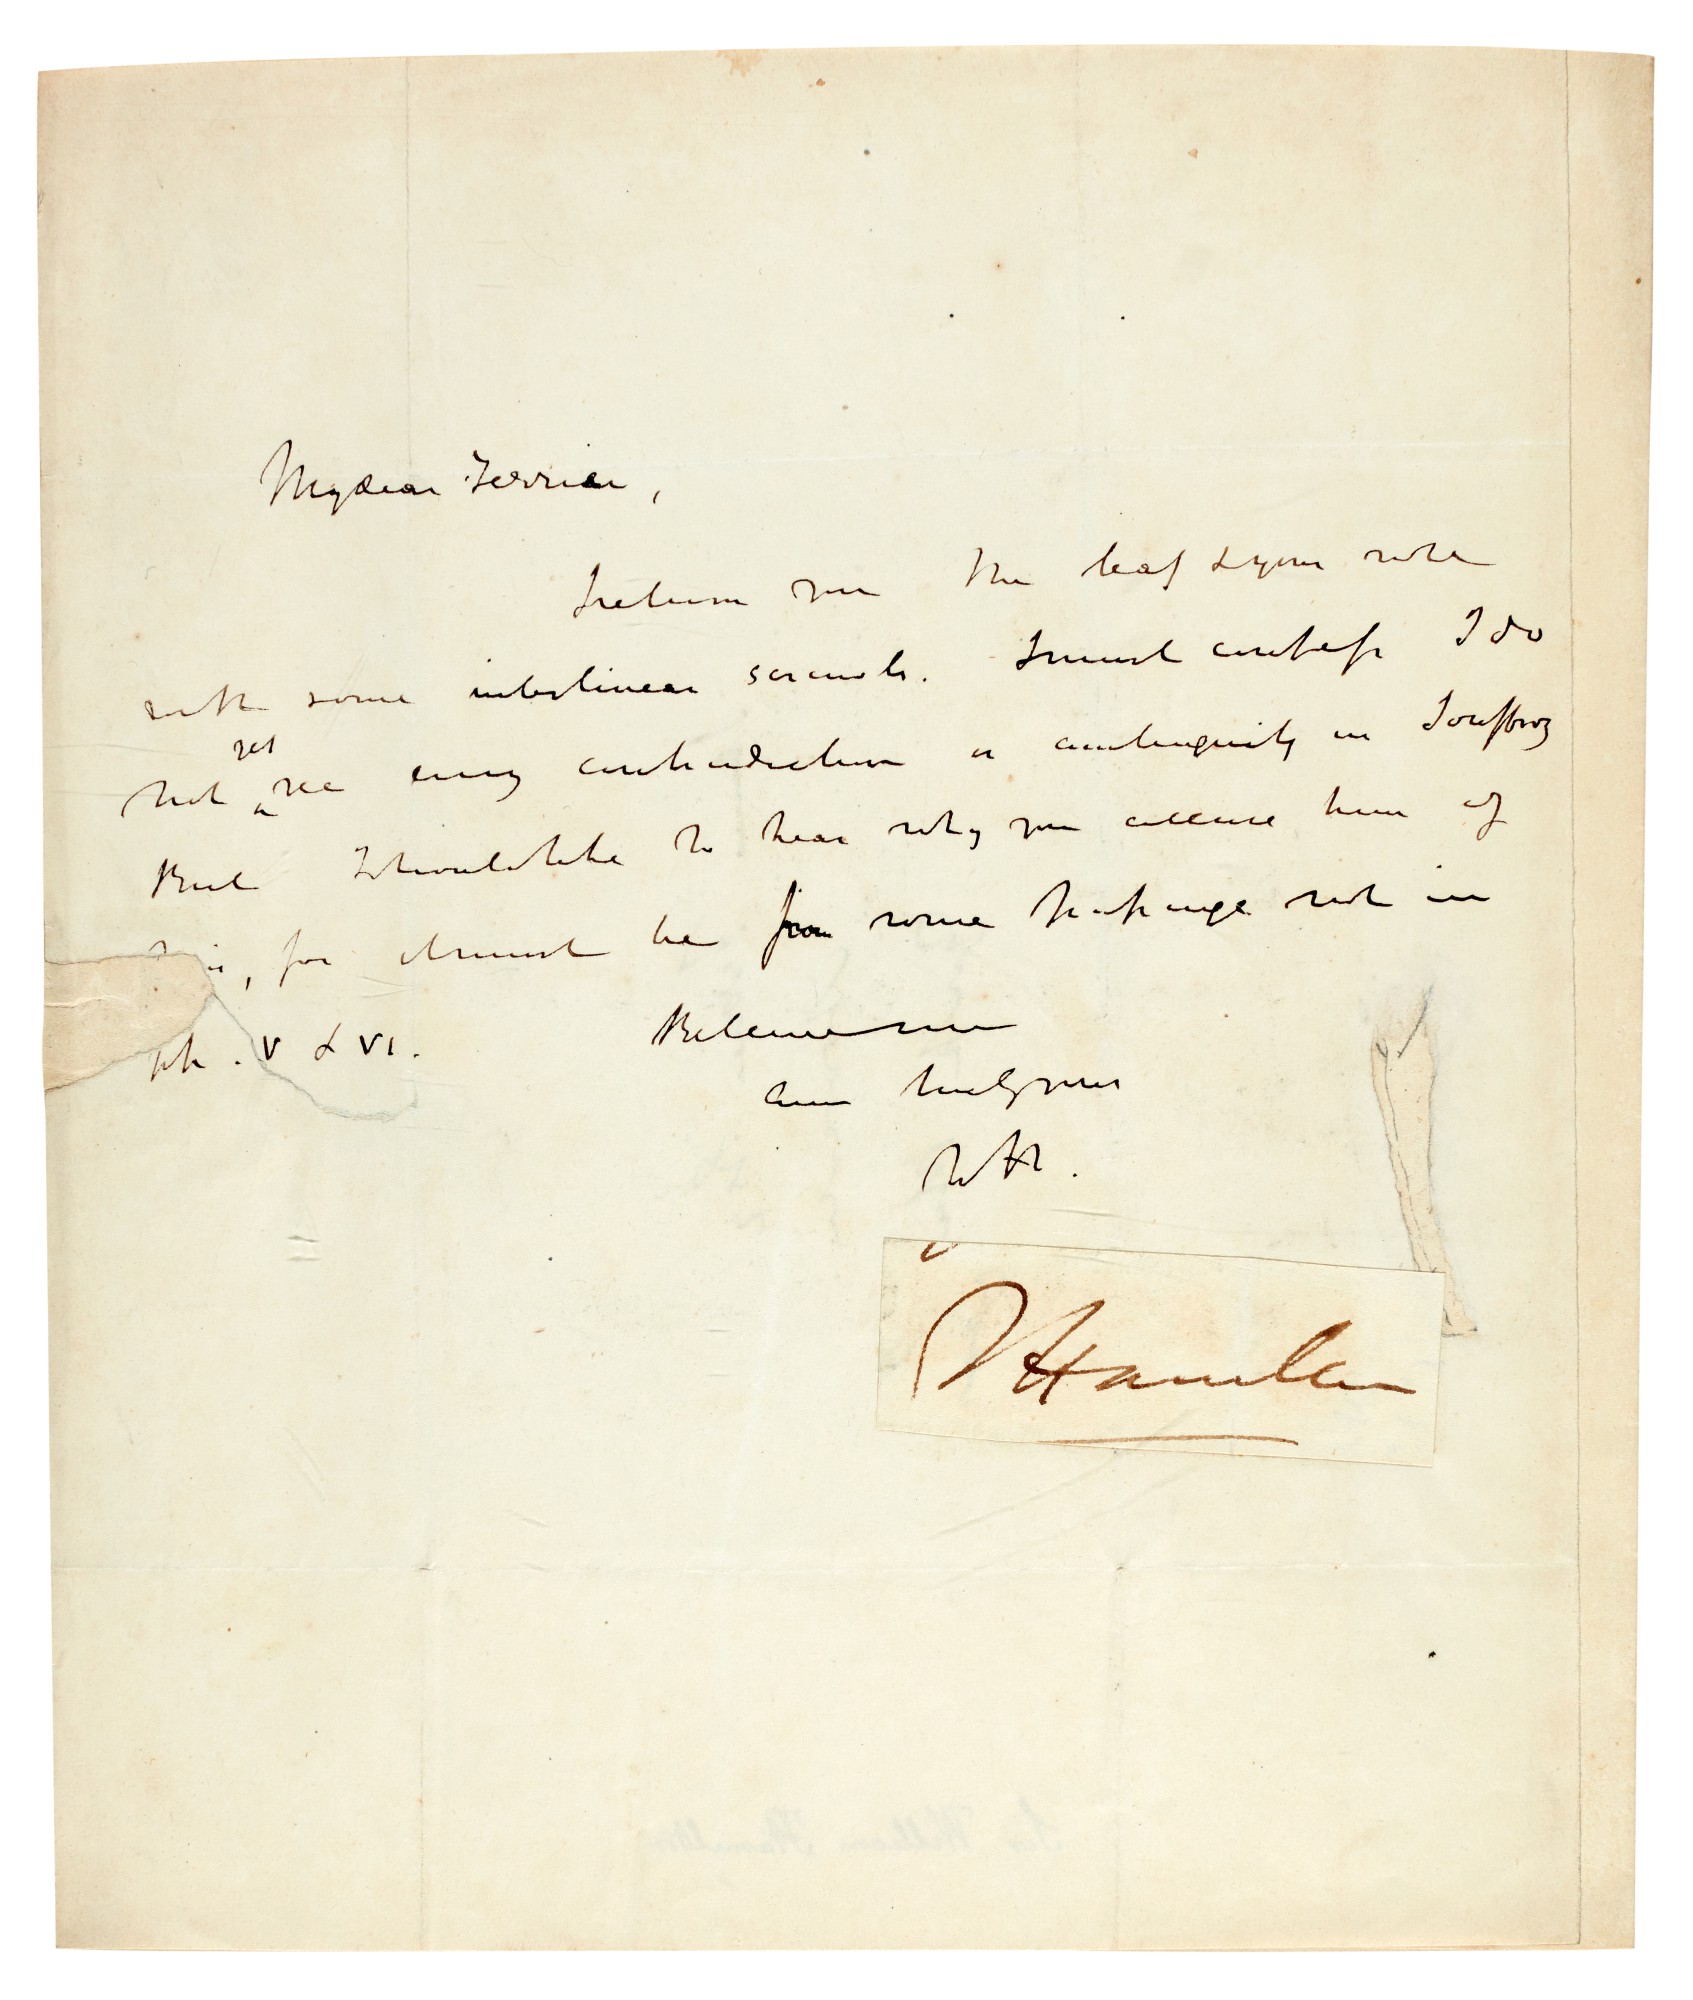 My dear Ferrier,
I return you the leaf & your note
with some interlinear scrawls. I must confess I do
not yet see any contradiction or ambiguity in Jouffroy
But I should like to hear why you accuse him of
for it must be from some passage not in
pp. V & VI.
Believe me
ever truly yours
WH.
W Hamilton
Sir William Hamilton